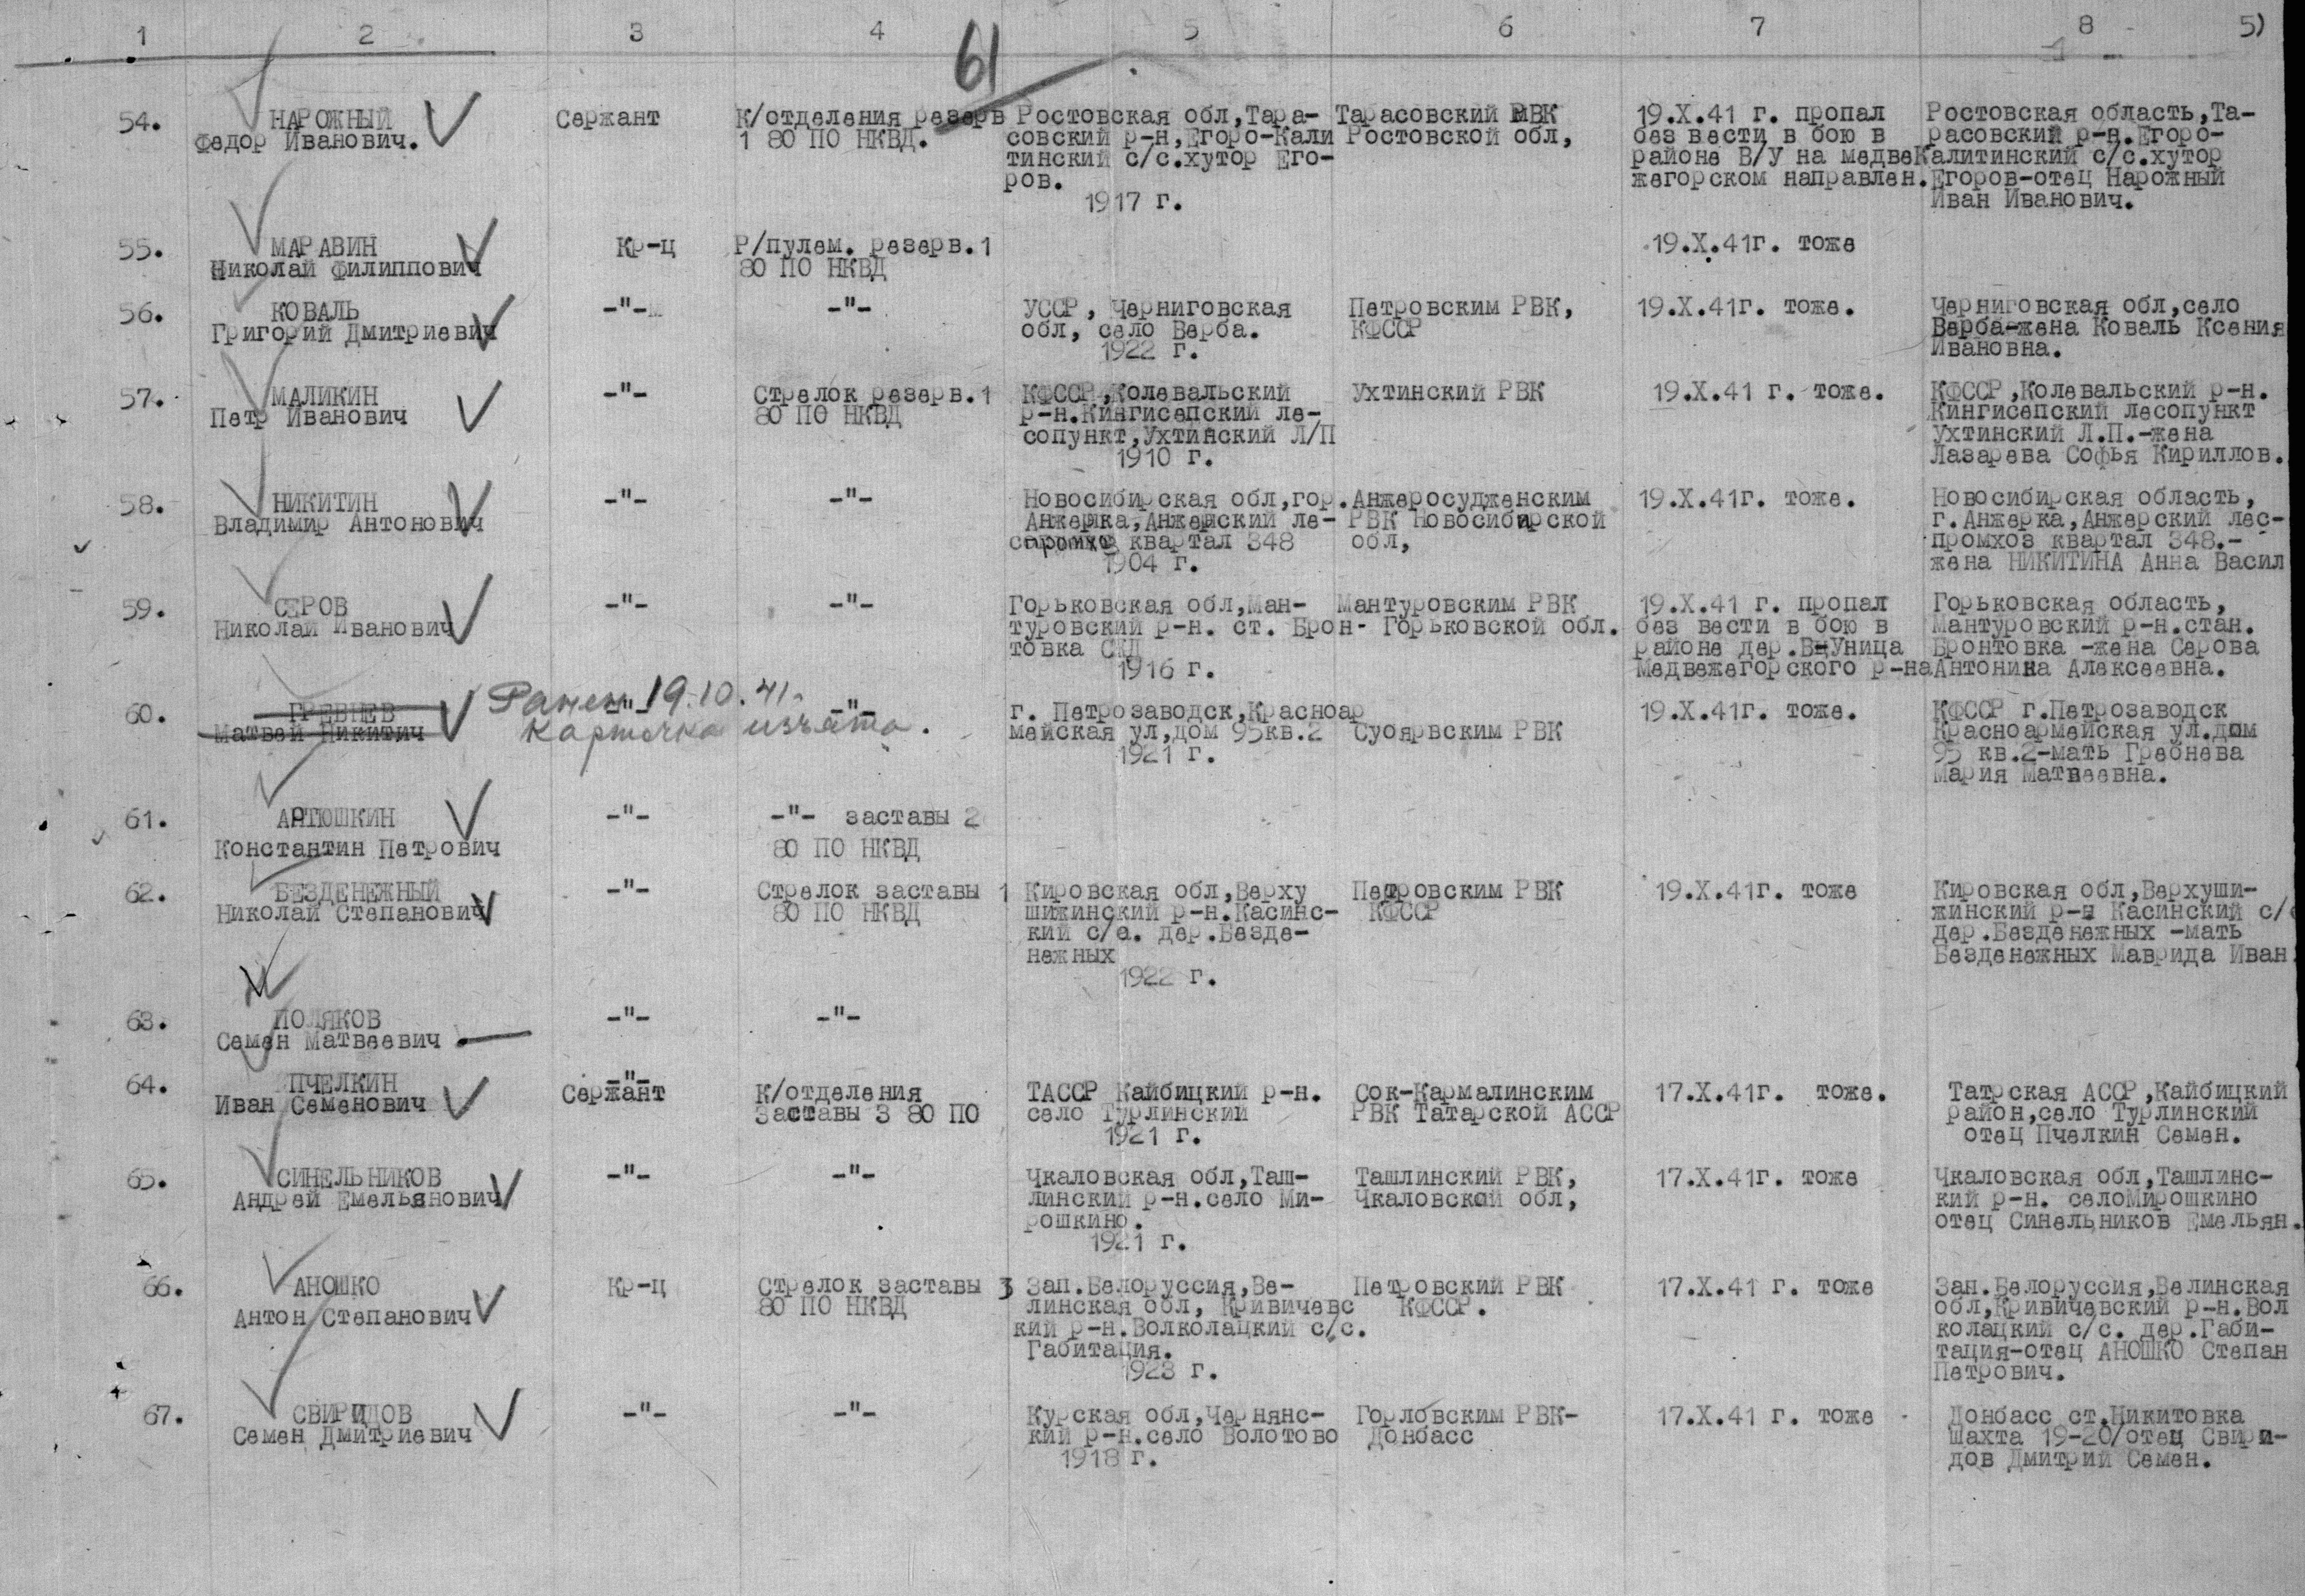 1 2 3 4 5 6 7 8 5)
61
54. НАРОЖНЫЙ Сержант К/отделения резерв Ростовская обл,Тара- Тарасовский РВК 19.X.41 г. пропал Ростовская область,Та-
Федор Иванович. 1 80 ПО НКВД. совский р-н,Егоро-Кали Ростовской обл, без вести в бою в расовский р-н.Егоро-
тинский с/с.хутор Его- районе В/У на медве Калитинский с/с.хутор
ров. жегорском направлен. Егоров-отец Нарожный
1917 г. Иван Иванович.
55. МАРАВИН Кр-ц Р/пулем. резерв.1 19.X.41г. тоже
Николай Филиппович 80 ПО НКВД
56. КОВАЛЬ -"- -"- УССР, Черниговская Петровским РВК, 19.X.41г. тоже. Черниговская обл,село
Григорий Дмитриевич обл, село Верба. КФССР Верба-жена Коваль Ксения
1922 г. Ивановна.
57. МАЛИКИН -"- Стрелок резерв.1 КФССР,Колевальский Ухтинский РВК 19.X.41 г. тоже. КФССР,Колевальский р-н.
Петр Иванович 80 ПО НКВД р-н.Кингисепский ле- Кингисепский лесопункт
сопункт,Ухтинский Л/П Ухтинский Л.П.-жена
1910 г. Лазарева Софья Кириллов.
58. НИКИТИН -"- -"- Новосибирская обл,гор. Анжеросудженским 19.X.41г. тоже. Новосибирская область,
Владимир Антонович Анжерка,Анжерский ле- РВК Новосибирской г.Анжерка,Анжерский лес-
квартал 348 обл, промхоз квартал 348.-
1904 г. жена НИКИТИНА Анна Васил
59. СЕРОВ -"- -"- Горьковская обл,Ман- Мантуровским РВК 19.X.41 г. пропал Горьковская область,
Николай Иванович туровский р-н. ст. Брон- Горьковской обл. без вести в бою в Мантуровский р-н.стан.
товка СЖД районе дер.В-Уница Бронтовка -жена Серова
1916 г. Медвежегорского р-на Антонина Алексеевна.
Ранен 19.10.41.
60. ГРЕБНЕВ -"- -"- г. Петрозаводск,Красноар 19.X.41г. тоже. КФССР г.Петрозаводск
Матвей Никитич Карточка изъята. мейская ул,дом 95кв.2 Суоярвским РВК Красноармейская ул.дом
1921 г. 95 кв.2-мать Гребнева
Мария Матвеевна.
61. АРТЮШКИН -"- -"- заставы 2
Константин Петрович 80 ПО НКВД
62. БЕЗДЕНЕЖНЫЙ -"- Стрелок заставы 1 Кировская обл,Верху Петровским РВК 19.X.41г. тоже Кировская обл,Верхуши-
Николай Степанович 80 ПО НКВД шижинский р-н.Касинс- КФССР жинский р-н Касинский с/с
кий с/с. дер.Безде- дер.Безденежных -мать
нежных Безденежных Маврида Иван.
1922 г.
63. ПОЛЯКОВ -"- -"-
Семен Матвеевич
64. ПЧЕЛКИН -"-
Иван Семенович Сержант К/отделения ТАССР Кайбицкий р-н. Сок-Кармалинским 17.X.41г. тоже. Татрская АССР,Кайбицкий
заставы 3 80 ПО село Турлинский РВК Татарской АССР район,село Турлинский
1921 г. отец Пчелкин Семен.
65. СИНЕЛЬНИКОВ -"- -"- Чкаловская обл,Таш- Ташлинский РВК, 17.X.41г. тоже Чкаловская обл,Ташлинс-
Андрей Емельянович линский р-н.село Ми- Чкаловской обл, кий р-н. селоМирошкино
рошкино. отец Синельников Емельян.
1921 г.
66. АНОШКО Кр-ц Стрелок заставы 3 Зап.Белоруссия,Ве- Петровский РВК 17.X.41 г. тоже Зап.Белоруссия,Велинская
Антон Степанович 80 ПО НКВД линская обл, Кривичевс КФССР. обл,Кривичевский р-н.Вол
кий р-н.Волколацкий с/с. колацкий с/с. дер.Габи-
Габитация. тация-отец АНОШКО Степан
1923 г. Петрович.
67. СВИРИДОВ -"- -"- Курская обл,Чернянс- Горловским РВК- 17.X.41 г. тоже Донбасс ст.Никитовка
Семен Дмитриевич кий р-н.село Волотово Донбасс шахта 19-20/отец Свири-
1918 г. дов Дмитрий Семен.